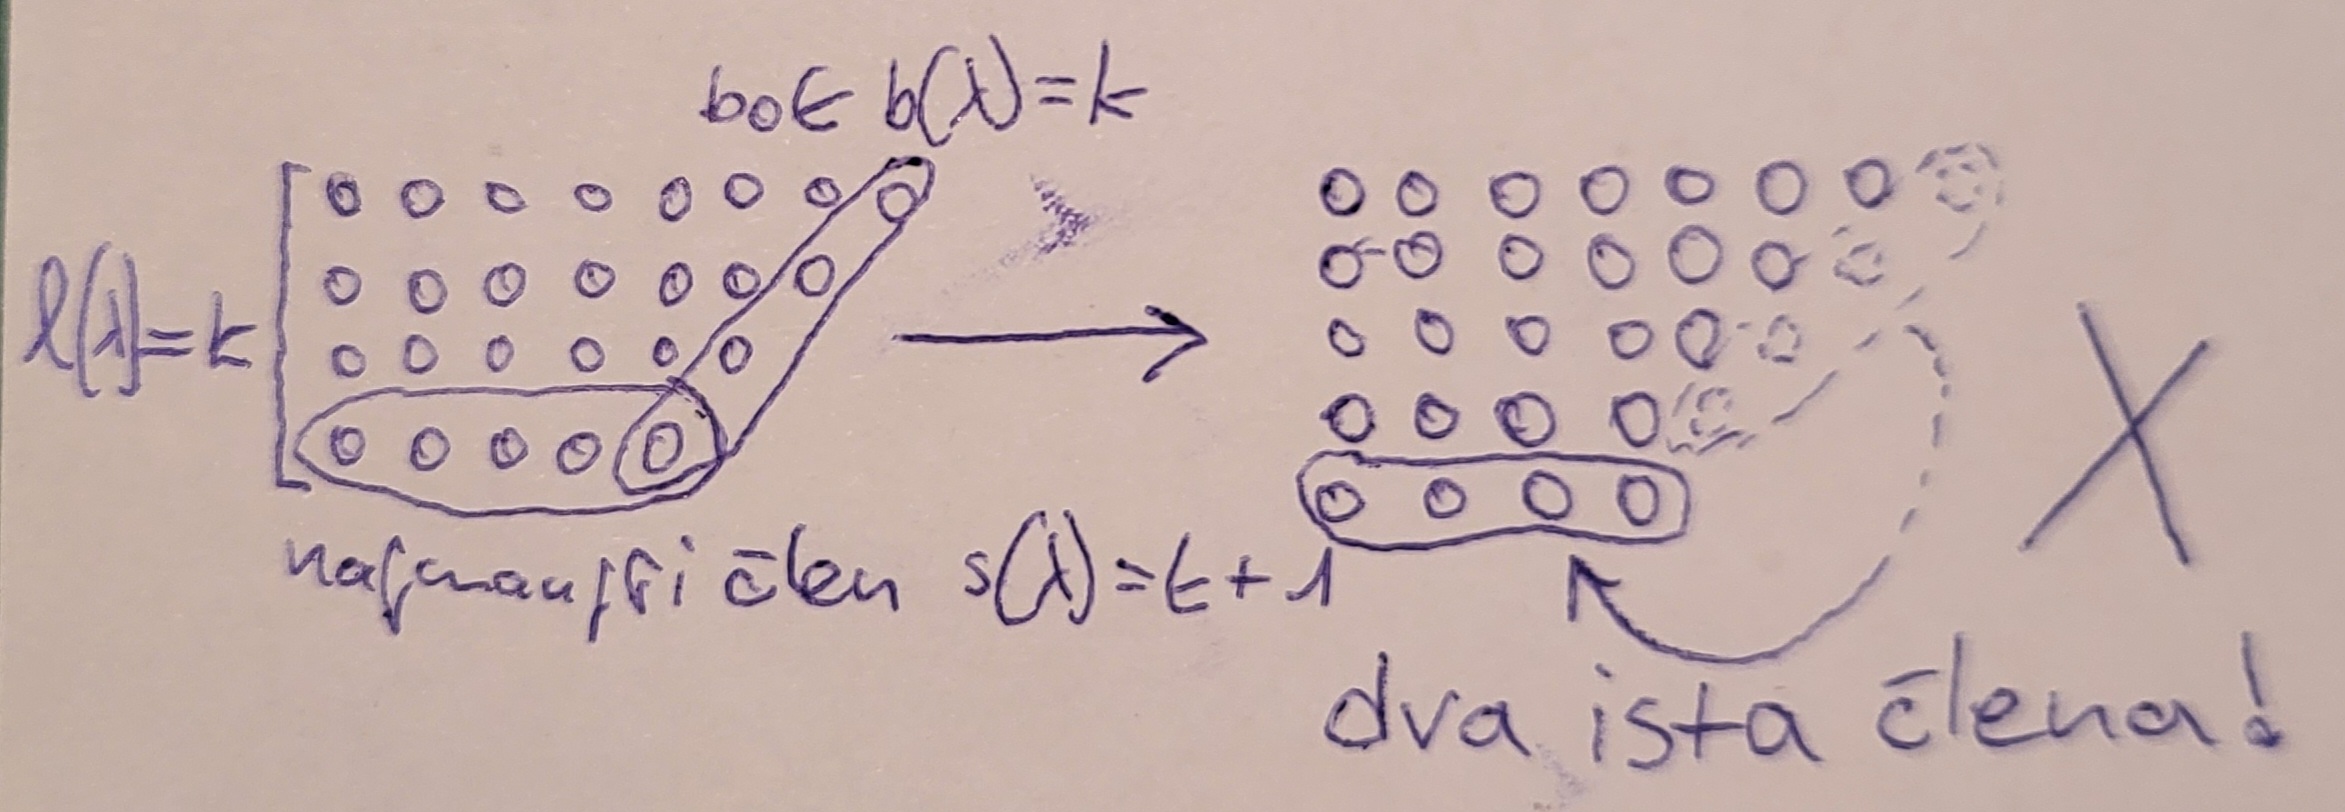 bok b(λ)=k
l(λ)=k
najmanji član s(λ)=k+1
dva ista člana!